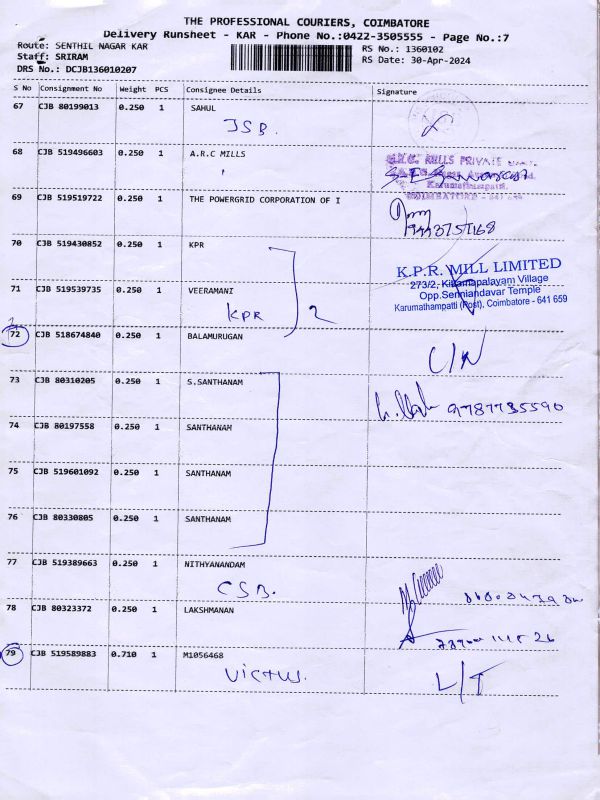 THE PROFESSIONAL COURIERS, COIMBATORE
Delivery Runsheet - KAR - Phone No.:0422-3505555 - Page No.:7
Route: SENTHIL NAGAR KAR
RS No.: 1360102
Staff: SRIRAM
RS Date: 30-Apr-2024
DRS No.: DCJB136010207
S No Consignment No Weight PCS Consignee Details Signature
67 CJB 80199013 0.250 1 SAHUL
JSB.
68 CJB 519496603 0.250 1 A.R.C MILLS
69 CJB 519519722 0.250 1 THE POWERGRID CORPORATION OF I
70 CJB 519430852 0.250 1 KPR
K.P.R. MILL LIMITED
273/2, Kittampalayam Village
Opp.Senniandavar Temple
Karumathampatti (Post), Coimbatore - 641 659
71 CJB 519539735 0.250 1 VEERAMANI
KPR 2
72 CJB 518674840 0.250 1 BALAMURUGAN
C/N
73 CJB 80310205 0.250 1 S.SANTHANAM
9787735590
74 CJB 80197558 0.250 1 SANTHANAM
75 CJB 519601092 0.250 1 SANTHANAM
76 CJB 80330805 0.250 1 SANTHANAM
77 CJB 519389663 0.250 1 NITHYANANDAM
CSB.
78 CJB 80323372 0.250 1 LAKSHMANAN
79 CJB 519589883 0.710 1 M1056468
Victus. L/T